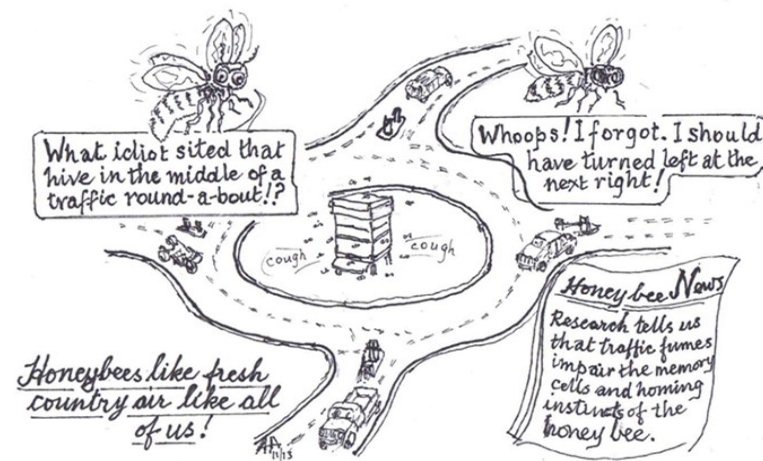 What idiot sited that
hive in the middle of a
traffic round-a-bout!?
Whoops! I forgot. I should
have turned left at the
next right!
cough
cough
Honeybee News
Research tells us
that traffic fumes
impair the memory
cells and homing
instincts of the
honey bee.
Honeybees like fresh
country air like all
of us!